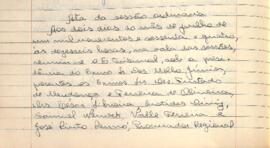 Ata da sessão ordinaria
Aos dois dias do mês de julho de
um mil novecentos e sessenta e quatro,
às regulares horas, na sala das sessões,
reuniu-se o Tribunal, sob a presi-
dência do Exmo Sr. Des. Mello Júnior,
presentes os Exmos Srs. Des. Furtado
de Mendonça e Ferreira de Oliveira,
Drs. Cesar Silveira,
Samuel Werneck, Valle Ferreira e
José Pinto Procurador Regional